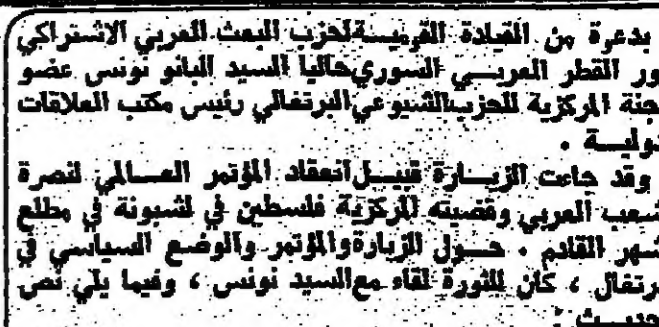 بدعوة من القيادة القومية لحزب البعث العربي الاشتراكي
ور القطر العربي السوري حاليا السيد البانو نونس عضو
جنة المركزية للحزب الشيوعي البرتغالي رئيس مكتب العلاقات
دولية .
وقد جاءت الزيارة قبيل انعقاد المؤتمر العالمي لنصرة
شعب العربي وقضيته المركزية فلسطين في لشبونة في مطلع
شهر القادم . حول الزيارة والمؤتمر والوضع السياسي في
برتغال ، كان للثورة لقاء مع السيد نونس ، وفيما يلي نص
حديث :